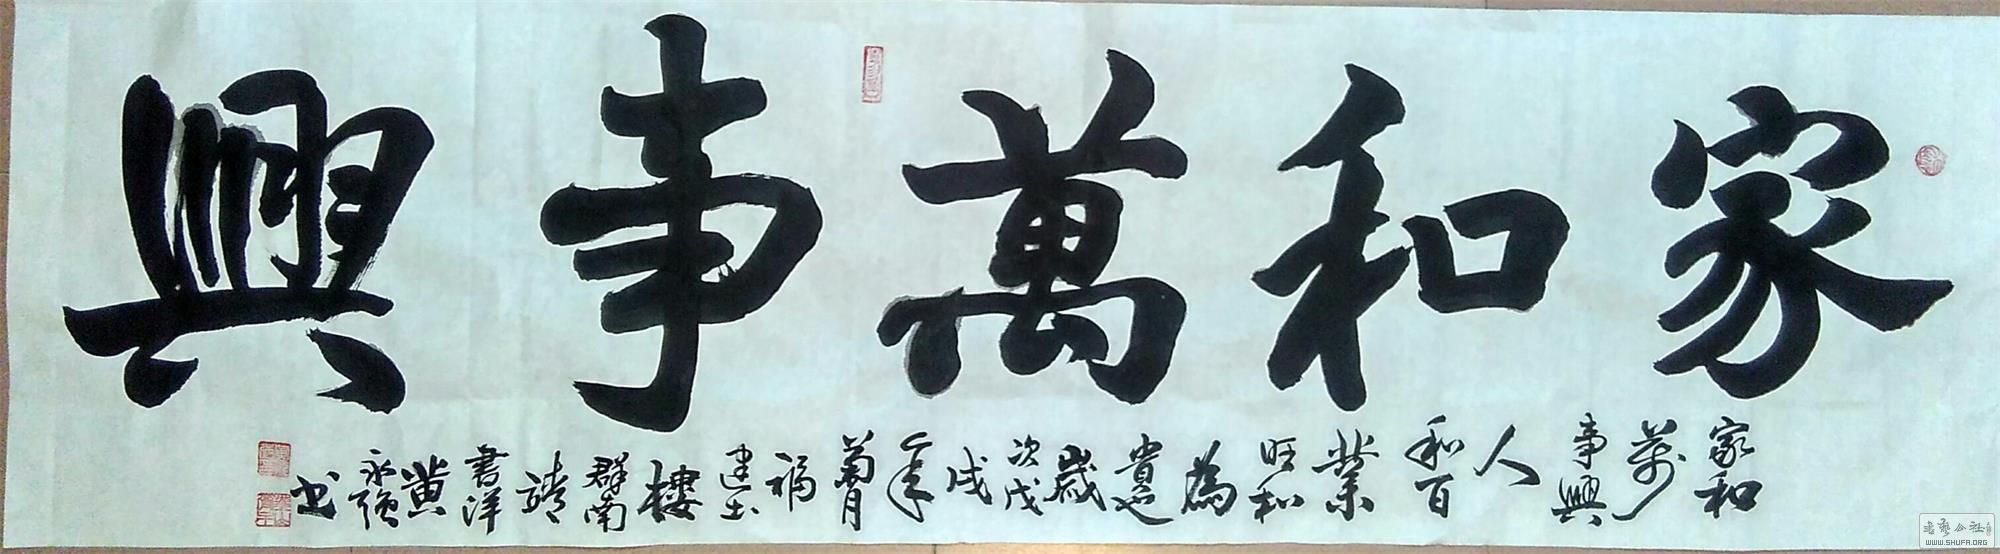 家和萬事興
家和
萬
事興
人
和百
業
旺和
為
貴也
歲
次戊
戌
年
菊月
福
建土
樓
群南
靖
書洋
黄
永強
书
WWW.SHUFA.ORG